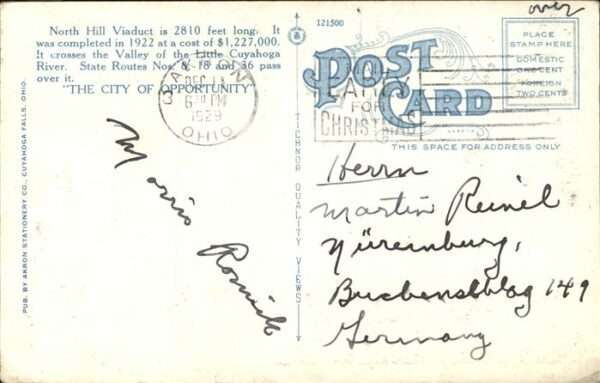 North Hill Viaduct is 2810 feet long. It
was completed in 1922 at a cost of $1,227,000.
It crosses the Valley of the Little Cuyahoga
River. State Routes Nos. 8, 18 and 36 pass
over it.
"THE CITY OF OPPORTUNITY"
DEC
6 PM
1929
OHIO
Morris
PUB. BY AKRON STATIONERY CO., CUYAHOGA FALLS, OHIO.
TICHNOR QUALITY VIEWS
121500
over
POST
CARD
PLACE
STAMP HERE
DOMESTIC
ONE CENT
FOREIGN
TWO CENTS
EARLY
FOR
CHRISTMAS
THIS SPACE FOR ADDRESS ONLY
Herrn
Martin
Nüremburg,
149
Germany